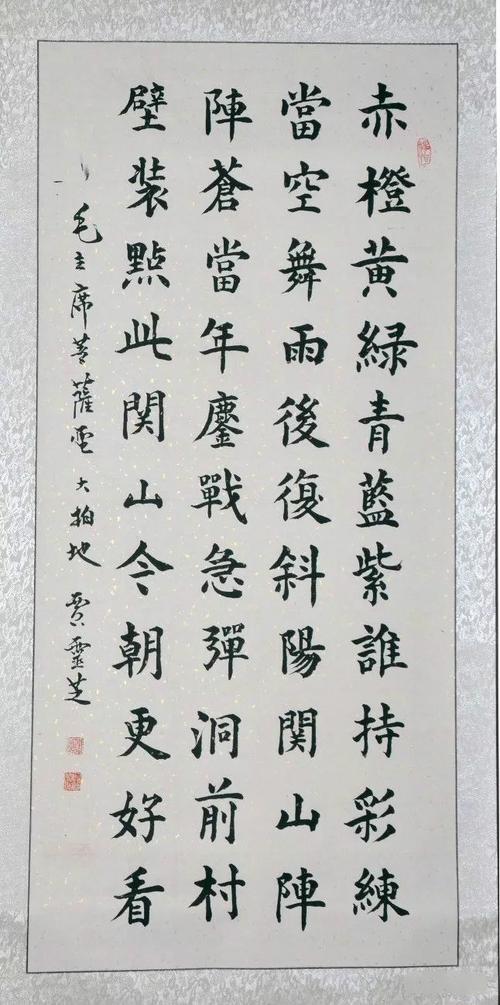 赤橙黄緑青藍紫誰持彩練
當空舞雨後復斜陽関山陣
陣蒼當年鏖戰急彈洞前村
壁装點此関山今朝更好看
毛主席菩薩蛮 大柏地 賈靈芝